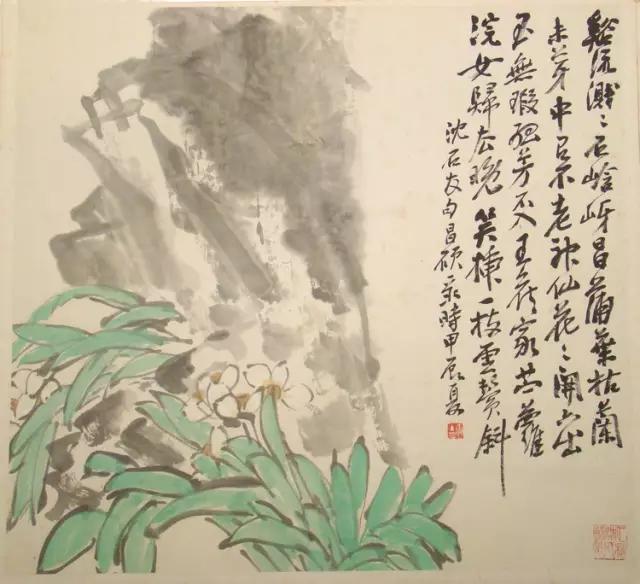 谿流濺〻石峆岈昌蒲葉枯蘭
未芽中有不老神仙花〻開出
玉無瑕孤芳不入王侯家苎蘿
浣女歸去晚笑插一枝雲鬢斜
沈石友句昌碩录時甲辰夏